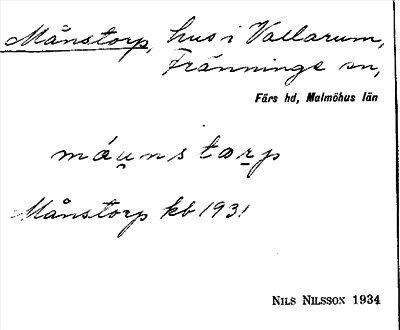 Månstorp, hus i Vallarum,
Fränninge sn,
Färs hd, Malmöhus län
máu̯nstar̠p
Månstorp kb 1931
NILS NILSSON 1934